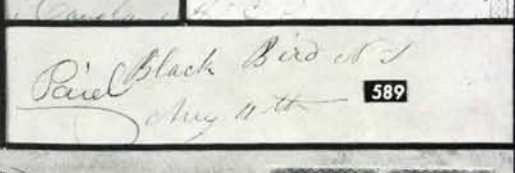 Paid Black Bird N J
Aug 11th
589